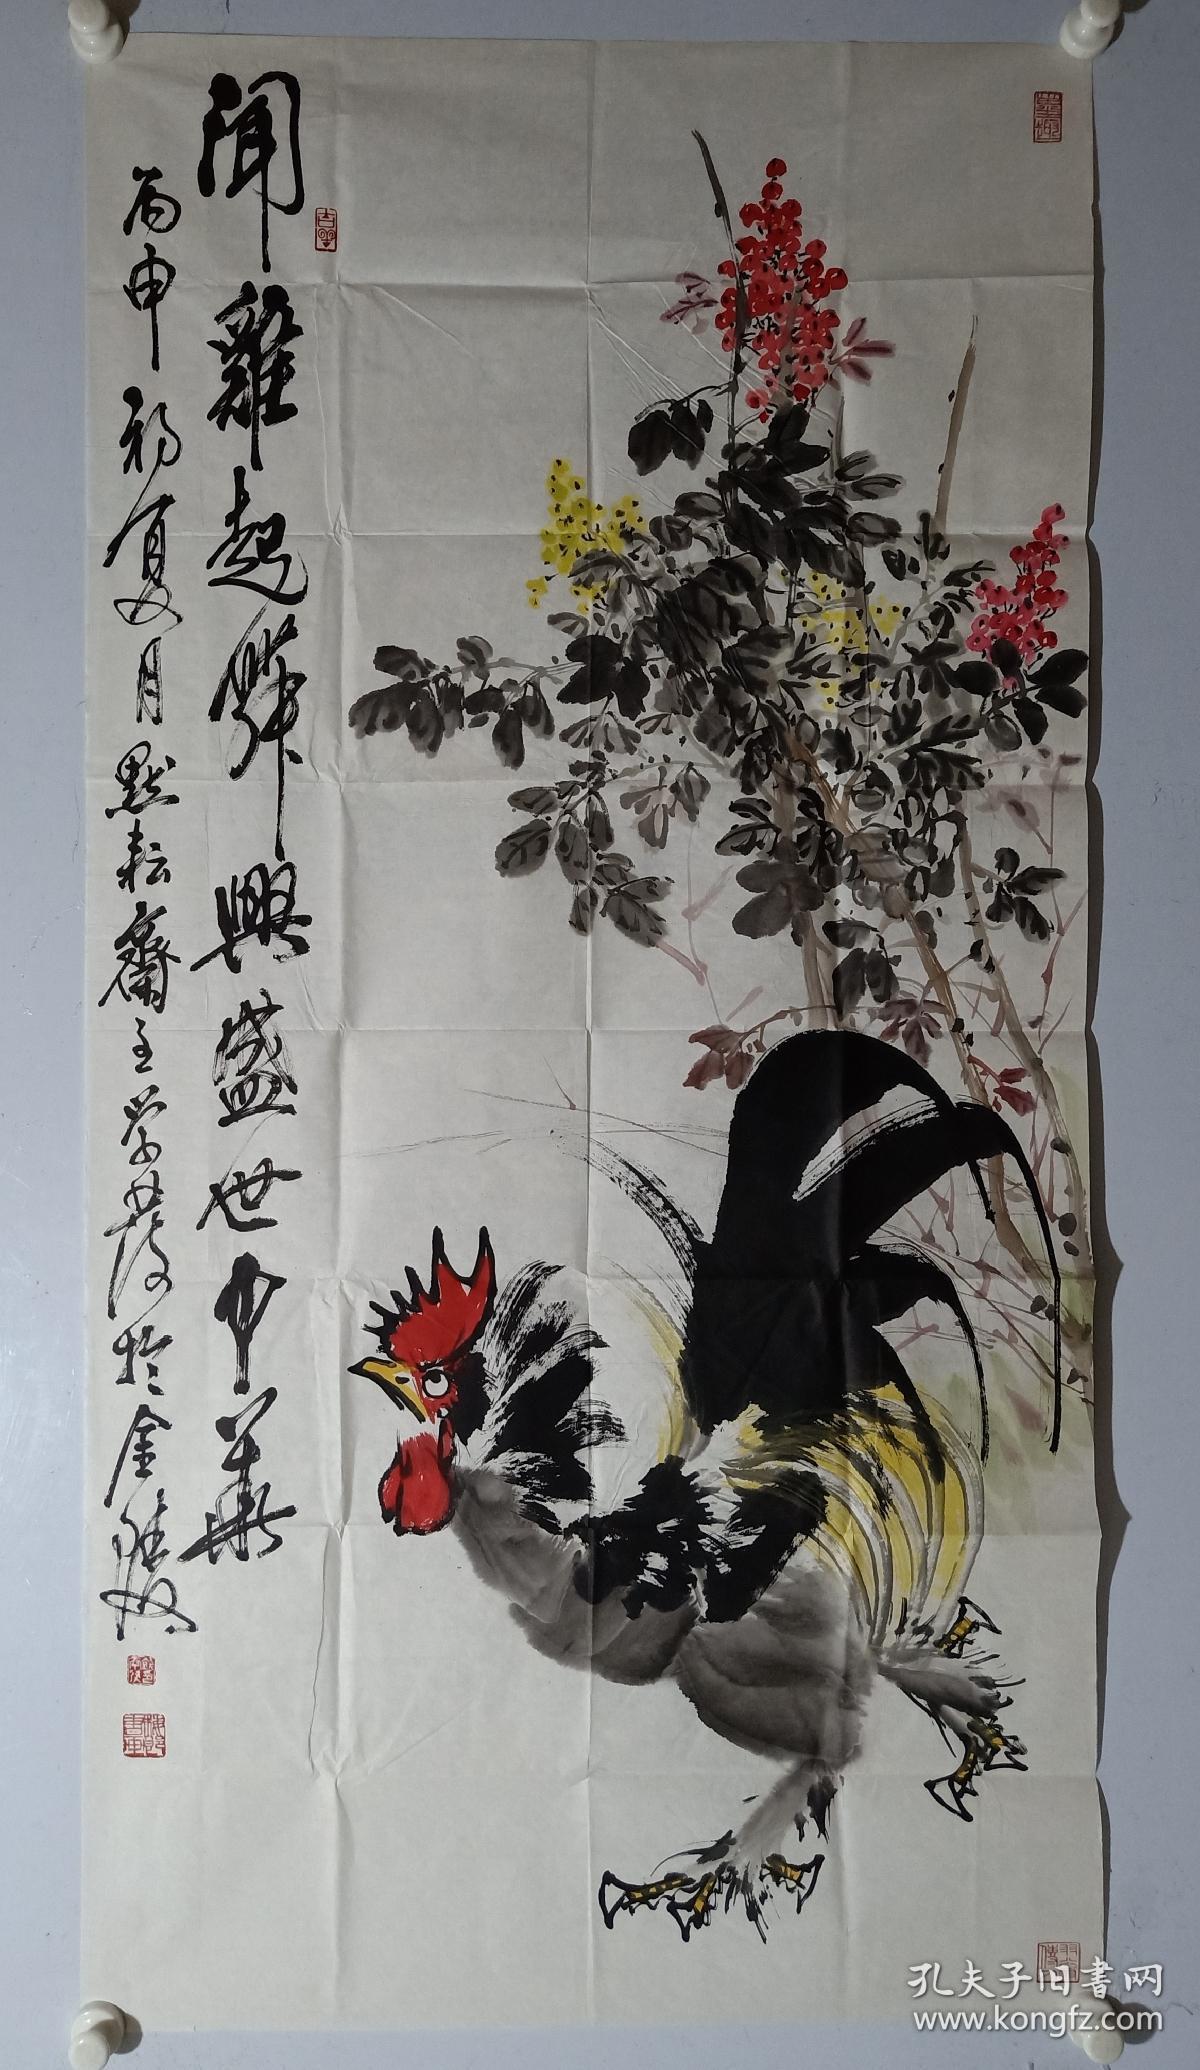 聞雞起舞興盛世中華
丙申初夏月默耘齋主学茂於金陵
孔夫子旧書网
www.kongfz.com